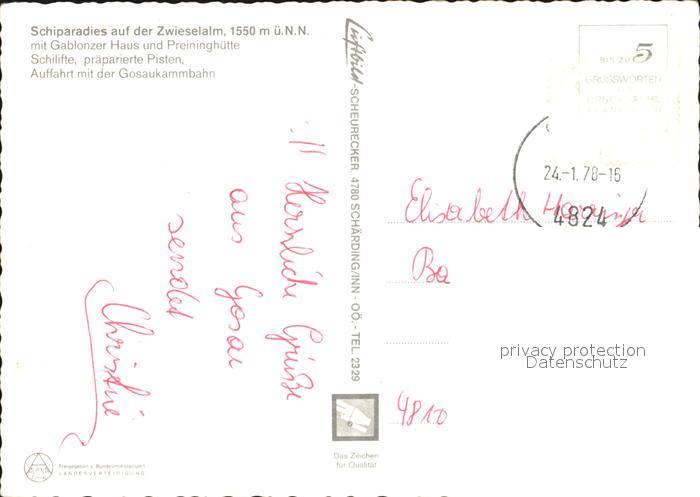 Schiparadies auf der Zwieselalm, 1550 m ü.N.N.
mit Gablonzer Haus und Preininghütte
Schilifte, präparierte Pisten,
Auffahrt mit der Gosaukammbahn
Luftbild-SCHEURECKER, 4780 SCHÄRDING/INN - OÖ. - TEL. 2329
BIS ZU 5
GRUSSWORTEN
24.-1.78-16
4824
Herzliche Grüße
aus Gosau
sendet
Christine
Elisabeth
Ba
4810
privacy protection
Datenschutz
Das Zeichen
für Qualität
Freigegeben v. Bundesministerium f.
LANDESVERTEIDIGUNG